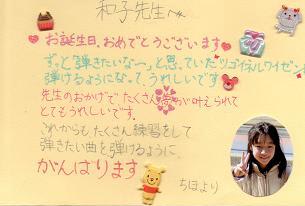 和子先生へ
お誕生日、おめでとうございます
ずっと「弾きたいなー」と思っていたツゴイネルワイゼンが
弾けるようになって、うれしいです
先生のおかげでたくさん夢が叶えられて
とてもうれしいです。
これからもたくさん練習をして
弾きたい曲を弾けるように
がんばります
ちほより